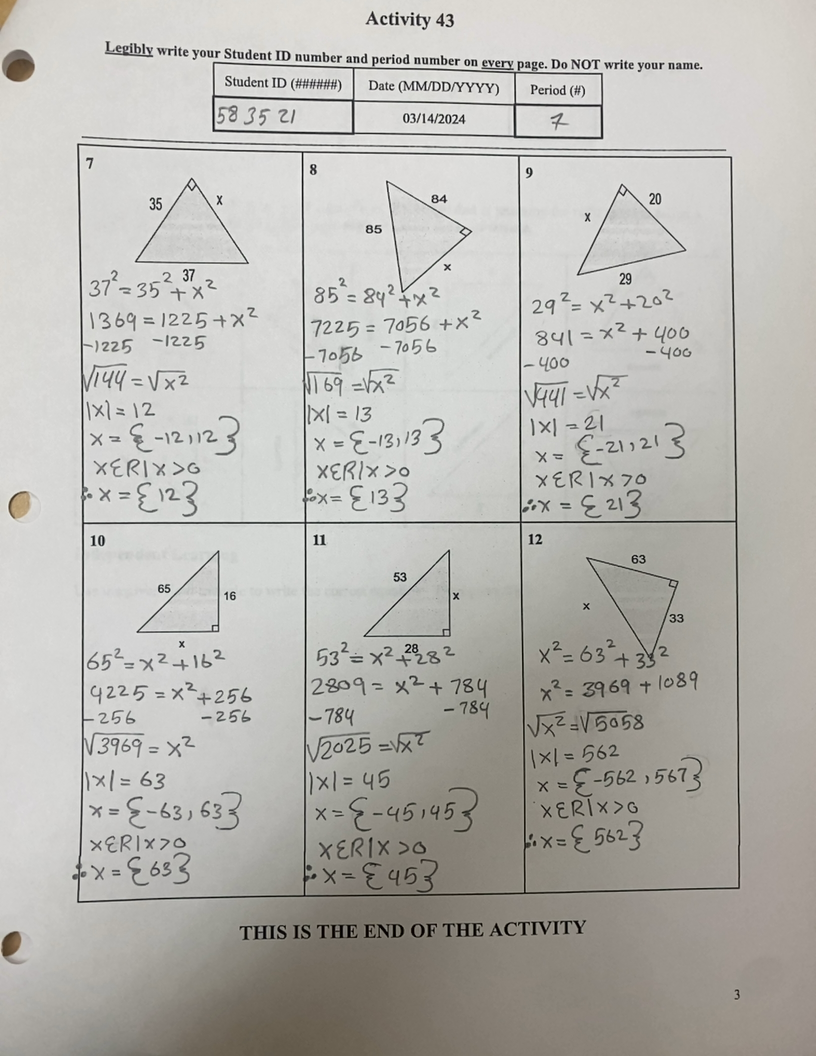 Activity 43
Legibly write your Student ID number and period number on every page. Do NOT write your name.
Student ID (######) Date (MM/DD/YYYY) Period (#)
58 35 21 03/14/2024 7
7
35 x
37
37² = 35² + x²
1369 = 1225 + x²
-1225 -1225
√144 = √x²
|x| = 12
x = {-12, 12}
xεR|x>0
∴ x = {12}
8
84
85
x
85² = 84² + x²
7225 = 7056 + x²
-7056 -7056
√169 = √x²
|x| = 13
x = {-13, 13}
xεR|x>0
∴ x = {13}
9
20
x
29
29² = x² + 20²
841 = x² + 400
-400 -400
√441 = √x²
|x| = 21
x = {-21, 21}
xεR|x>0
∴ x = {21}
10
65 16
x
65² = x² + 16²
4225 = x² + 256
-256 -256
√3969 = x²
|x| = 63
x = {-63, 63}
xεR|x>0
∴ x = {63}
11
53
x
28
53² = x² + 28²
2809 = x² + 784
-784 -784
√2025 = √x²
|x| = 45
x = {-45, 45}
xεR|x>0
∴ x = {45}
12
63
x
33
x² = 63² + 33²
x² = 3969 + 1089
√x² = √5058
|x| = 562
x = {-562, 567}
xεR|x>0
∴ x = {562}
THIS IS THE END OF THE ACTIVITY
3